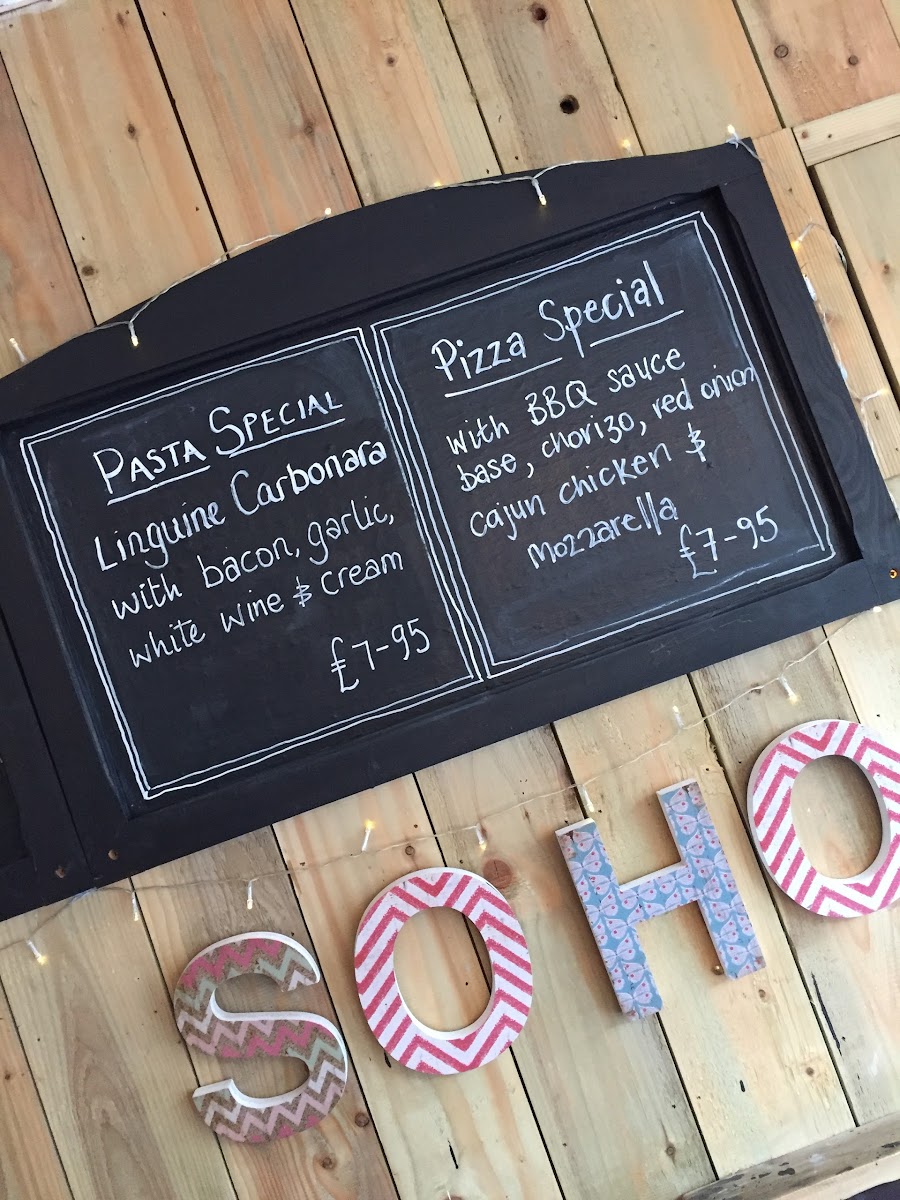 PASTA SPECIAL
Linguine Carbonara
with bacon, garlic,
white wine & cream
£7-95
Pizza Special
with BBQ sauce
base, chorizo, red onion
cajun chicken &
mozzarella
£7-95
SOHO